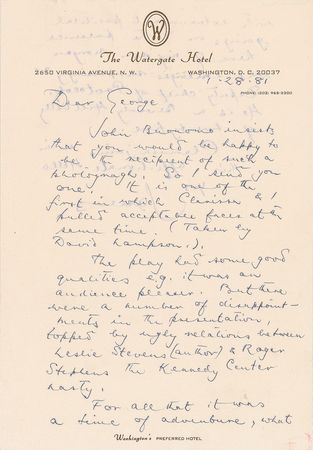 W
The Watergate Hotel
2650 VIRGINIA AVENUE, N. W. WASHINGTON, D. C. 20037
PHONE: (202) 965-2300
7-28-81
Dear George
John Buonomo insists
that you would be happy to
be the recipient of such a
photograph. So I send you
one. It is one of the
first in which Clarissa & I
pulled acceptable faces at the
same time. (Taken by
David Lampson.).
The play had some good
qualities e.g. it was an
audience pleaser. But there
were a number of disappoint-
ments in the presentation
topped by ugly relations between
Leslie Stevens (author) & Roger
Stephens the Kennedy Center
nasty.
For all that it was
a time of adventure, what
Washington's PREFERRED HOTEL